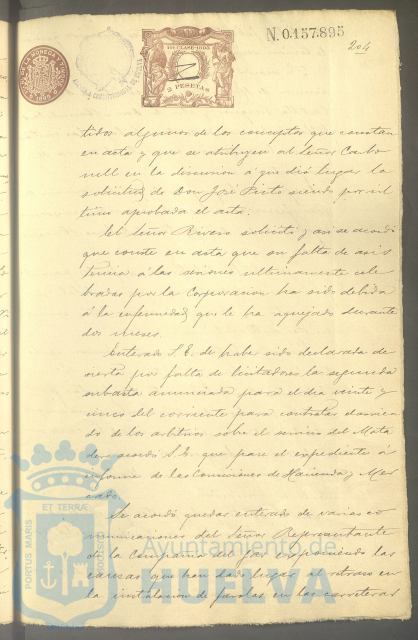 N. 0.157.895
204
11ª CLASE-1895
2 PESETAS
tidos algunos de los conceptos que constan
en acta y que se atribuyen al Señor Carbo-
nell en la discusion á que dió lugar la
solicitud de Don José Prieto siendo por úl-
timo aprobada el acta.
El Señor Rivero solicitó y asi se acordó
que conste en acta que su falta de asis-
tencia á las sesiones ultimamente cele-
bradas por la Corporacion ha sido debida
á la enfermedad que le ha aquejado durante
dos meses.
Enterado S. E. de haber sido declarada de-
sierta por falta de licitadores la segunda
subasta anunciada para el dia veinte y
cinco del corriente para contratar el arrien-
do de los arbitrios sobre el servicio del Mata-
dero acordó S. E. que pase el expediente á
informe de las Comisiones de Hacienda y Mer-
cado.
Se acordó quedar enterado de varias co-
municaciones del Señor Representante
de la Compañia del Gas exponiendo las
causas que han dado lugar al retraso en
la instalacion de farolas en las carreteras
PORTUS MARIS
ET TERRÆ
CUSTODIA
Ayuntamiento de
HUELVA